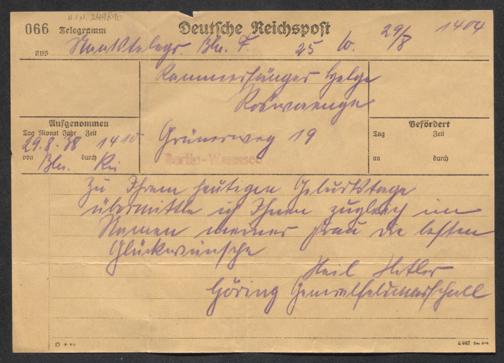 066 Telegramm Deutsche Reichspost
aus Staatstelegr. Bln. F. 25 W. 29/8 1404
Kammersänger Helge
Roswaenge
Aufgenommen
Tag Monat Jahr Zeit
29.8.38 1410
von Bln. durch
Grünerweg 19
Berlin-Wannsee
Befördert
Tag Zeit
an durch
Zu Ihrem heutigen Geburtstage
übermittle ich Ihnen zugleich im
Namen meiner Frau die besten
Glückwünsche
Heil Hitler
Göring Generalfeldmarschall